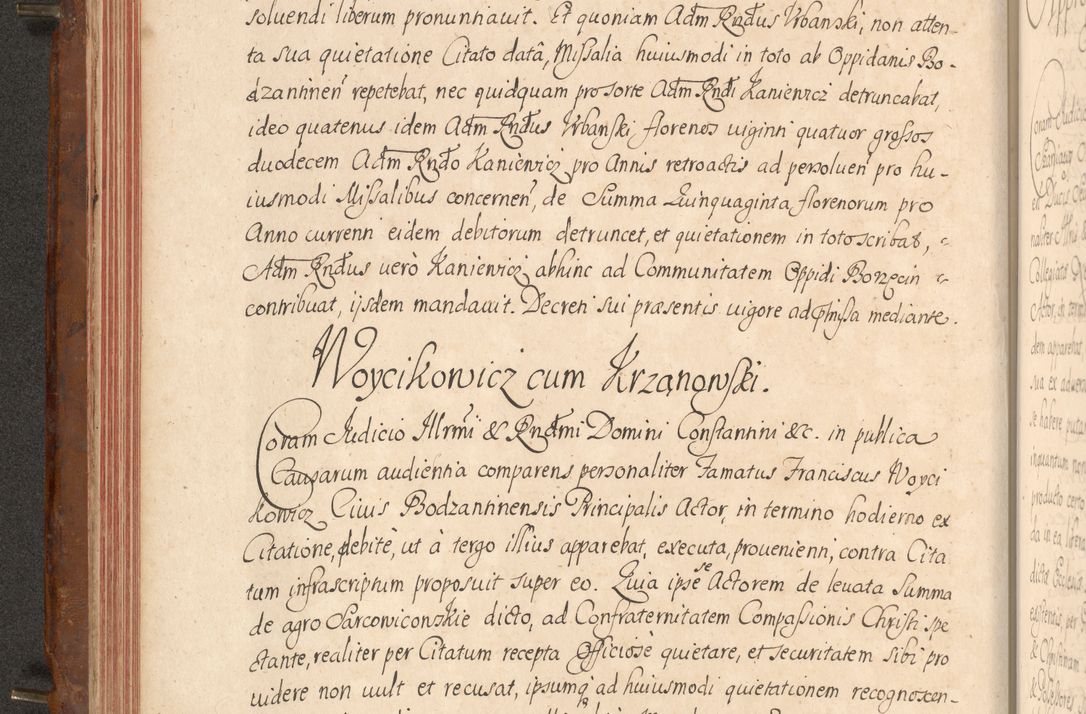 soluendi liberum pronuntiauit. Et quoniam Adm Rndus Urbanski, non atten-
ta sua quietatione Citato datâ, Missalia huiusmodi in toto ab Oppidanis Bo-
dzantinen repetebat, nec quidquam pro sorte Adm Rndi Kaniewicz detruncabat,
ideo quatenus idem Adm Rndus Urbanski, florenos uiginti quatuor grossos
duodecem Adm Rndo Kaniewicz pro Annis retroactis ad persoluen pro hu-
iusmodi Missalibus concernen, de Summa Quinquaginta florenorum pro
Anno currenti eidem debitorum detruncet, et quietationem in toto scribat,
Adm Rndus uerò Kaniewicz abhinc ad Communitatem Oppidi Borzęcin
contribuat, ijsdem mandauit. Decreti sui præsentis uigore ad præmissa mediante.
Woycikowicz cum Krzanowski.
Coram Judicio Illrmi & Rndmi Domini Constantini &c. in publica
Causarum audientia comparens personaliter Famatus Franciscus Woyci
kowicz Ciuis Bodzantinensis Principalis Actor, in termino hodierno ex
Citatione, debitè, ut à tergo illius apparebat, executa, prouenienti, contra Cita
tum infrascriptum proposuit super eo. Quia ipse se Actorem de leuata Summa
de agro Sarcowiconskie dicto, ad Confraternitatem Compassionis Christi spe
ctante, realiter per Citatum recepta Officiosè quietare, et securitatem sibi pro
uidere non uult et recusat, ipsumq ad huiusmodi quietationem recognoscen-